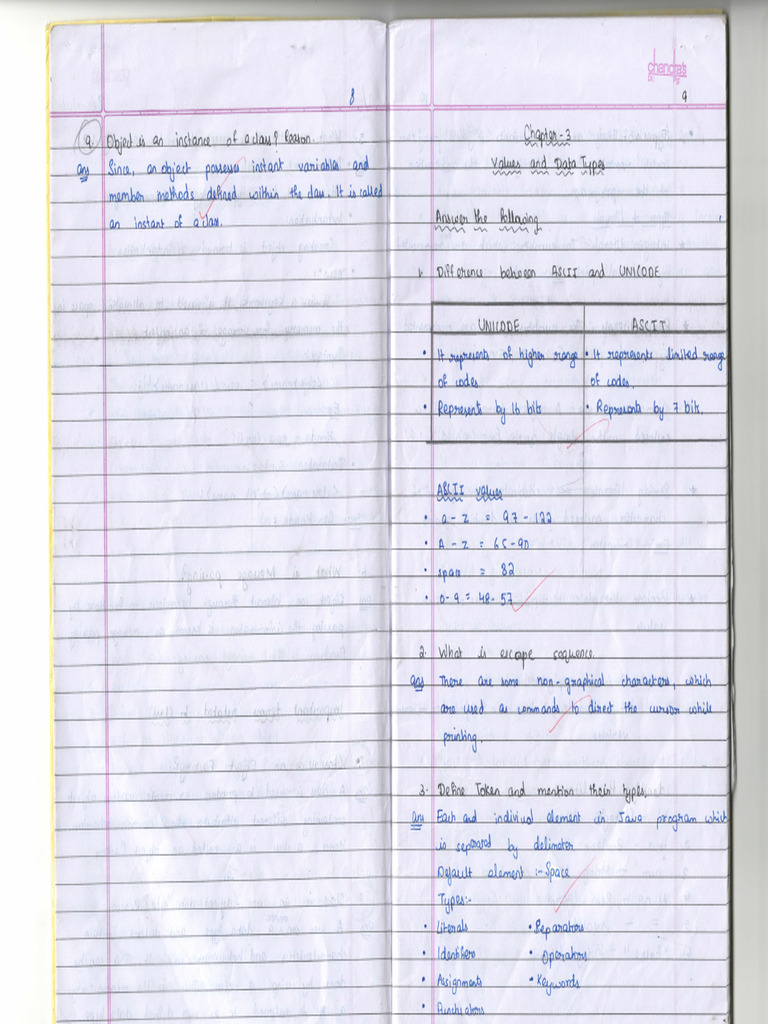 8
9. Object is an instance of a class? Reason.
ans Since, an object possess instant variables and
member methods defined within the class. It is called
an instant of a class.
chandra's
9
Chapter-3
Values and Data Types
Answer the following
1. Difference between ASCII and UNICODE
UNICODE ASCII
• It represents of higher range • It represents limited range
of codes of codes.
• Represents by 16 bits • Represents by 7 bit.
ASCII values
• a - z = 97 - 122
• A - z = 65-90
• space = 82
• 0-9 = 48-57
2. What is escape sequence.
ans There are some non-graphical characters, which
are used as commands to direct the cursor while
printing.
3. Define Token and mention their types.
ans Each and individual element in Java program which
is seperated by delimator
Default element :- Space
Types:-
• Literals • Separators
• Identifiers • Operators
• Assignments • Keywords
• Punctuators